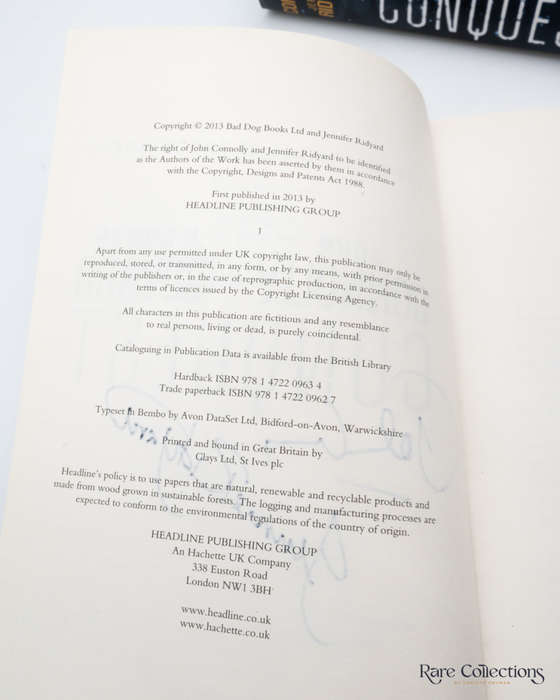 CONQUES
Copyright © 2013 Bad Dog Books Ltd and Jennifer Ridyard
The right of John Connolly and Jennifer Ridyard to be identified
as the Authors of the Work has been asserted by them in accordance
with the Copyright, Designs and Patents Act 1988.
First published in 2013 by
HEADLINE PUBLISHING GROUP
1
Apart from any use permitted under UK copyright law, this publication may only be
reproduced, stored, or transmitted, in any form, or by any means, with prior permission in
writing of the publishers or, in the case of reprographic production, in accordance with the
terms of licences issued by the Copyright Licensing Agency.
All characters in this publication are fictitious and any resemblance
to real persons, living or dead, is purely coincidental.
Cataloguing in Publication Data is available from the British Library
Hardback ISBN 978 1 4722 0963 4
Trade paperback ISBN 978 1 4722 0962 7
Typeset in Bembo by Avon DataSet Ltd, Bidford-on-Avon, Warwickshire
Printed and bound in Great Britain by
Glays Ltd, St Ives plc
Headline's policy is to use papers that are natural, renewable and recyclable products and
made from wood grown in sustainable forests. The logging and manufacturing processes are
expected to conform to the environmental regulations of the country of origin.
HEADLINE PUBLISHING GROUP
An Hachette UK Company
338 Euston Road
London NW1 3BH
www.headline.co.uk
www.hachette.co.uk
Rare Collections